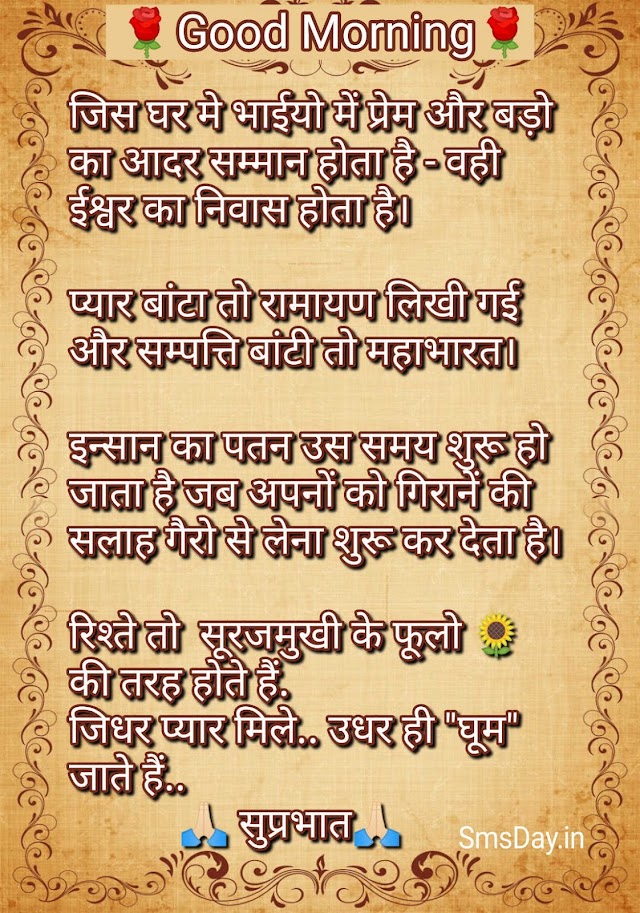 🌹Good Morning🌹
जिस घर मे भाईयो में प्रेम और बड़ो
का आदर सम्मान होता है - वही
ईश्वर का निवास होता है।
प्यार बांटा तो रामायण लिखी गई
और सम्पत्ति बांटी तो महाभारत।
इन्सान का पतन उस समय शुरू हो
जाता है जब अपनों को गिरानें की
सलाह गैरो से लेना शुरू कर देता है।
रिश्ते तो सूरजमुखी के फूलो 🌻
की तरह होते हैं.
जिधर प्यार मिले.. उधर ही "घूम"
जाते हैं..
🙏🏻 सुप्रभात🙏🏻
SmsDay.in